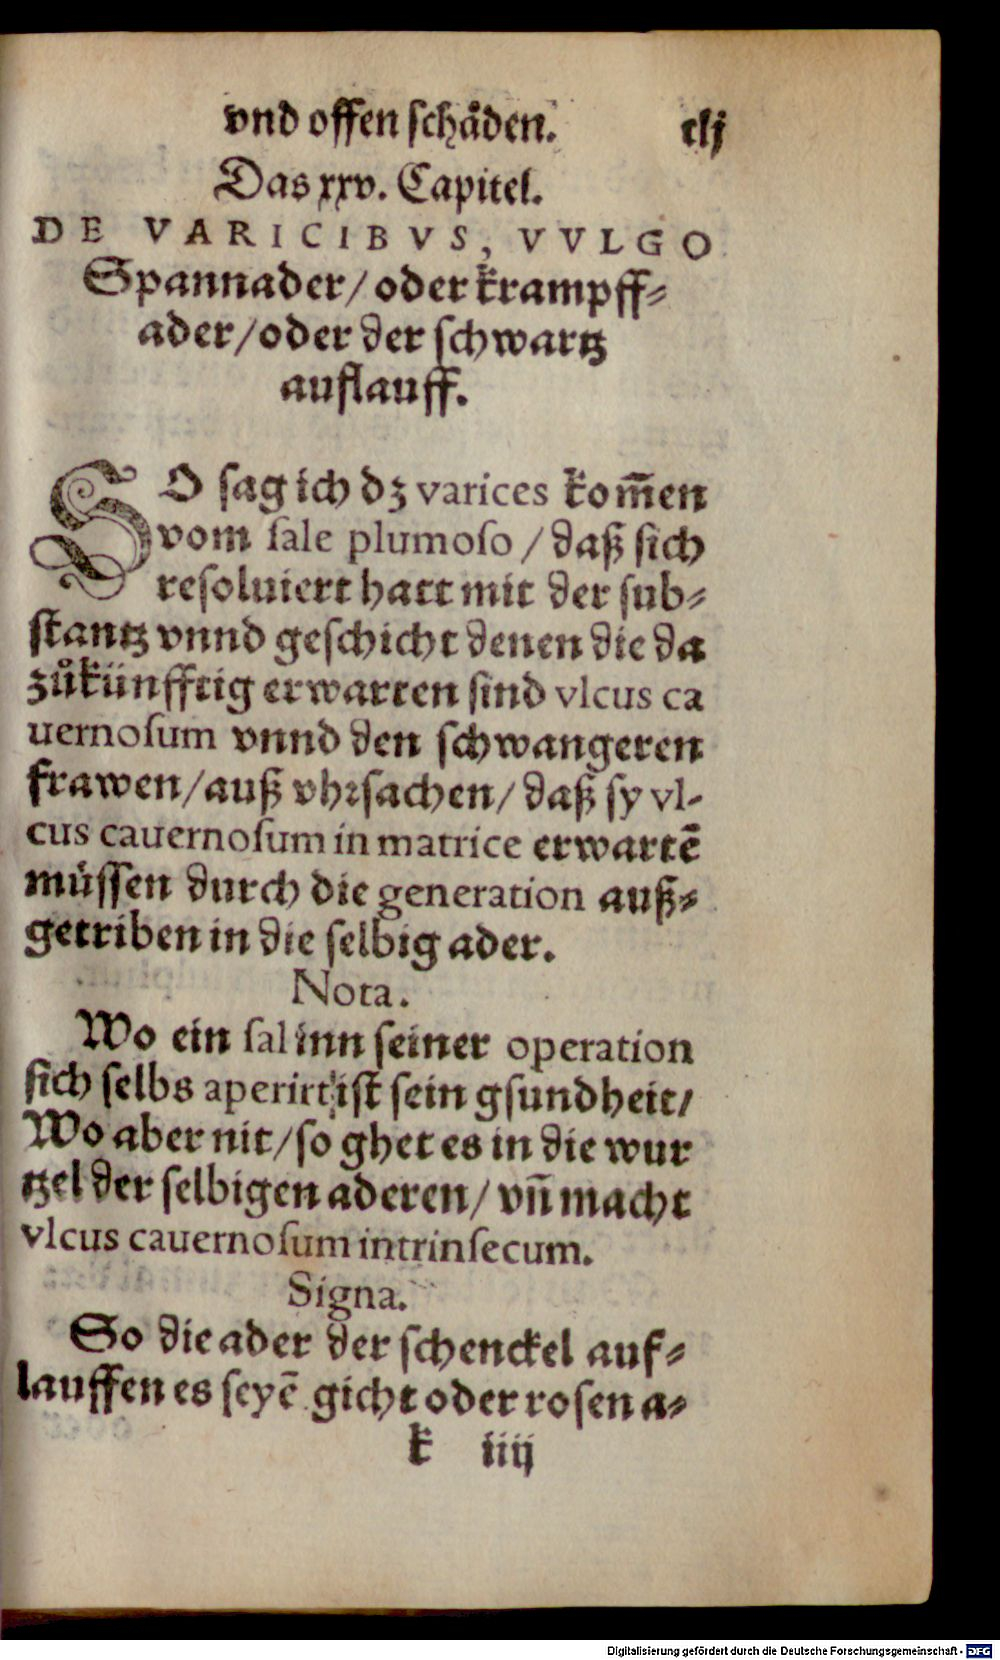 vnd offen schåden. clj
Das xxv. Capitel.
DE VARICIBVS, VVLGO
Spannader/ oder krampff⸗
ader/oder der schwartz
auflauff.
SO sag ich dz varices kom̄en
vom sale plumoso /daß sich
resoluiert hatt mit der sub⸗
stantz vnnd geschicht denen die da
zůkünfftig erwarten sind vlcus ca
uernosum vnnd den schwangeren
frawen/auß vhrsachen/ daß sy vl-
cus cauernosum in matrice erwartē
müssen durch die generation auß⸗
getriben in die selbig ader.
Nota.
Wo ein sal inn seiner operation
sich selbs aperirt/ist sein gsundheit/
Wo aber nit/so ghet es in die wur
tzel der selbigen aderen/ vn̄ macht
vlcus cauernosum intrinsecum.
Signa.
So die ader der schenckel auf⸗
lauffen es seyē gicht oder rosen a⸗
k iiij
Digitalisierung gefördert durch die Deutsche Forschungsgemeinschaft - DFG